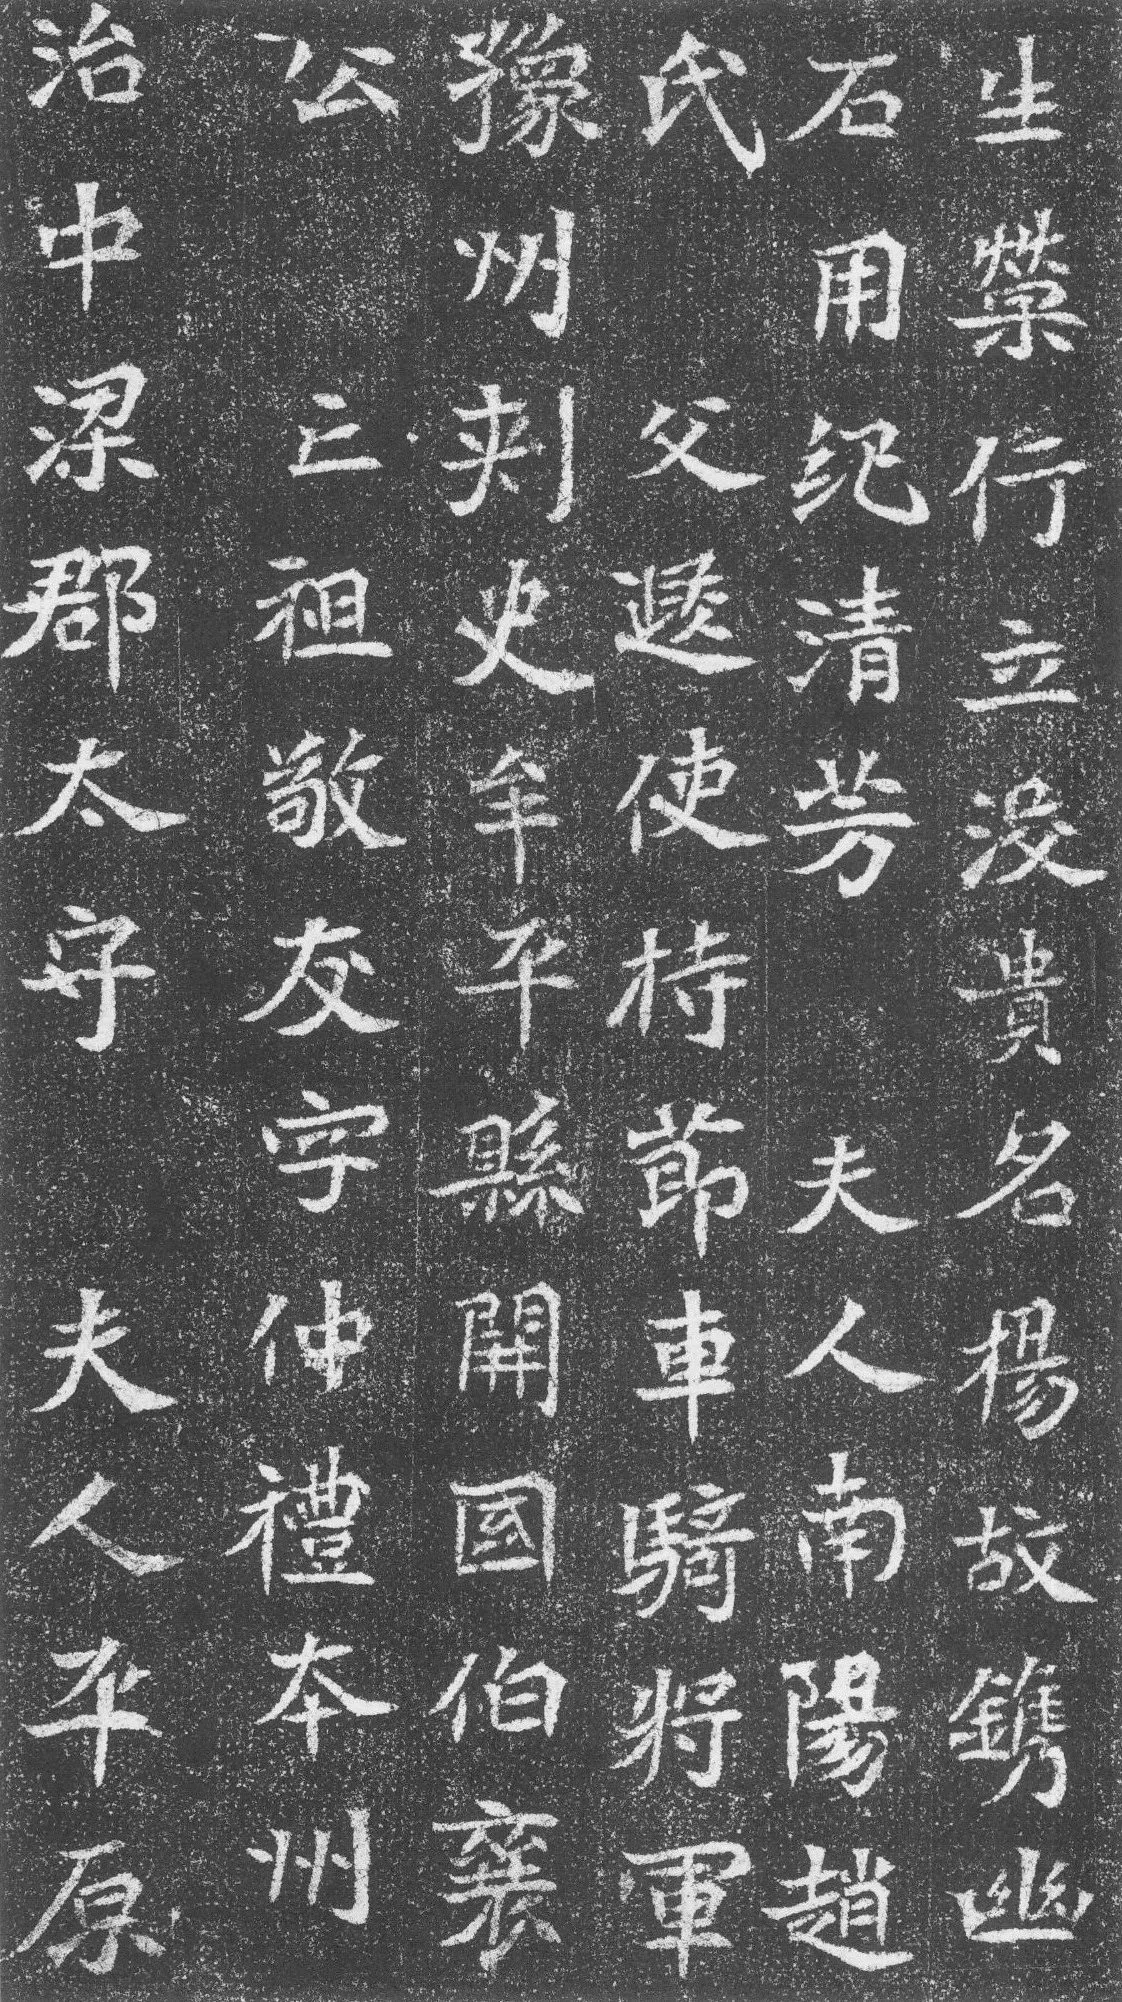 生榮行立没貴名揚故鐫幽
石用紀清芳　夫人南陽趙
氏　父使持節車騎將軍
豫州刺史牟平縣開國伯襄
公　亡祖敬友字仲禮本州
治中梁郡太守　夫人平原